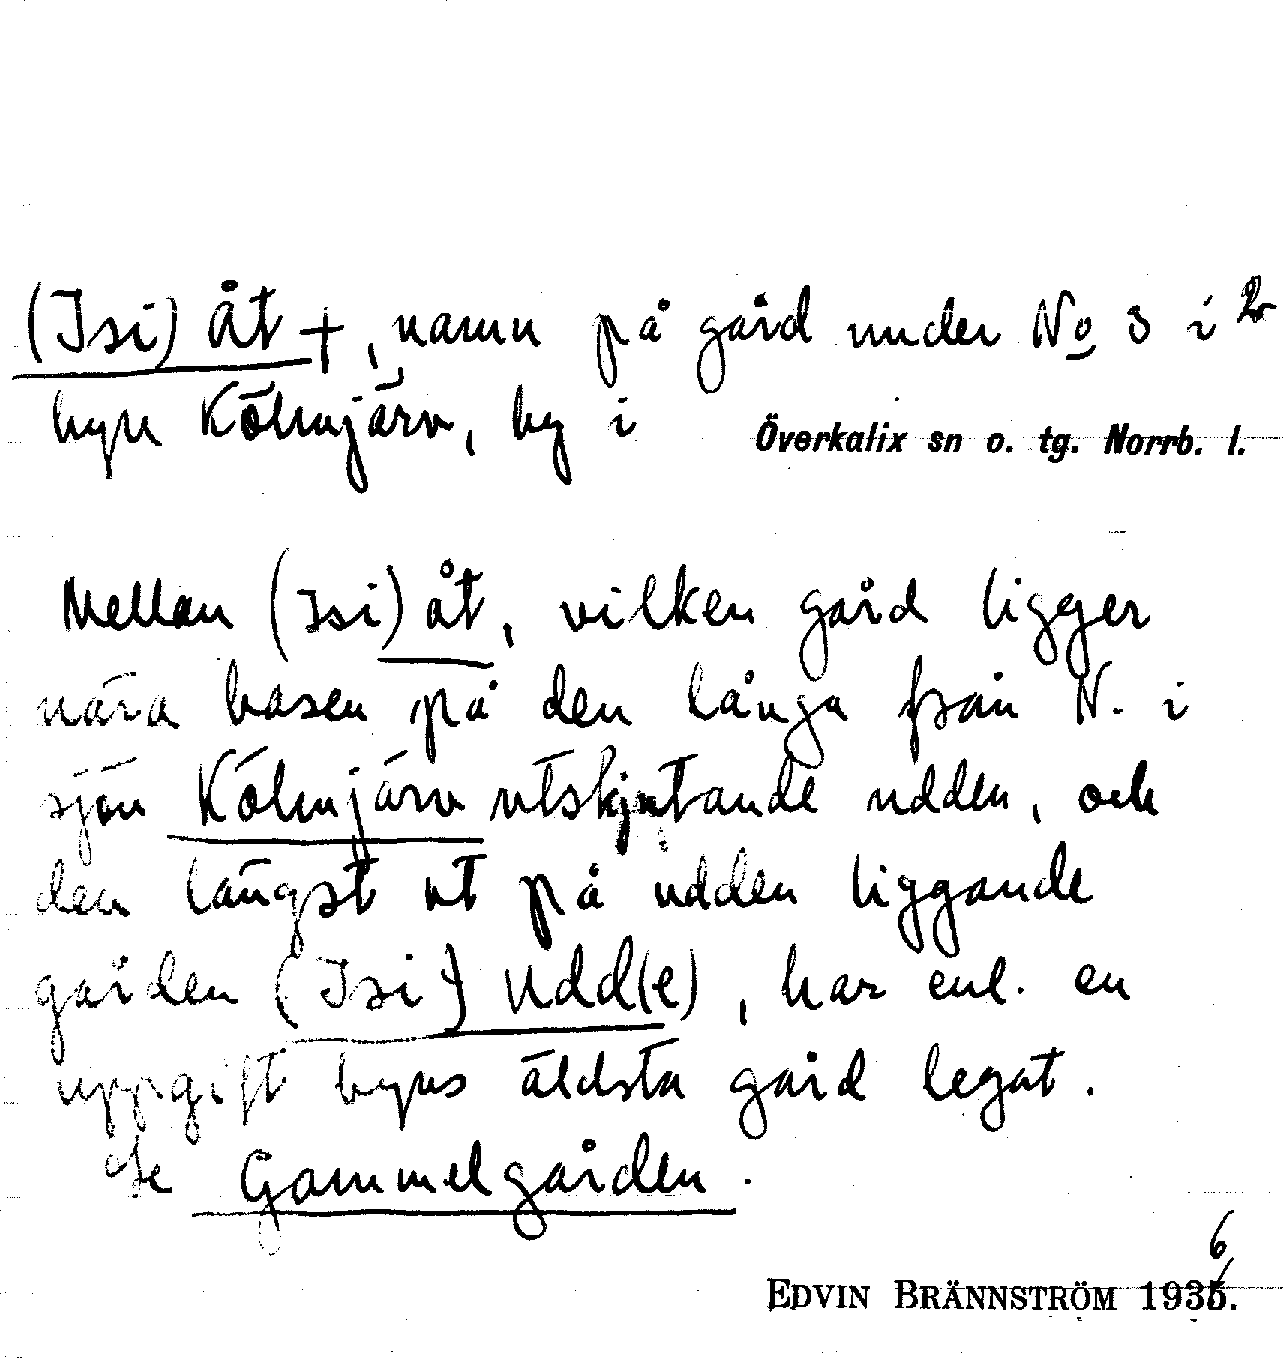 (Isi) åt +, namn på gård under No 3 i 2
byn Kölmjärv, by i Överkalix sn o. tg. Norrb. l.
Mellan (Isi) åt, vilken gård ligger
nära basen på den långa från N. i
sjön Kölmjärv utskjutande udden, och
den längst ut på udden liggande
gården (Isi) Udd(e), har enl. en
uppgift byns äldsta gård legat.
Se Gammelgården.
6
EDVIN BRÄNNSTRÖM 1935.